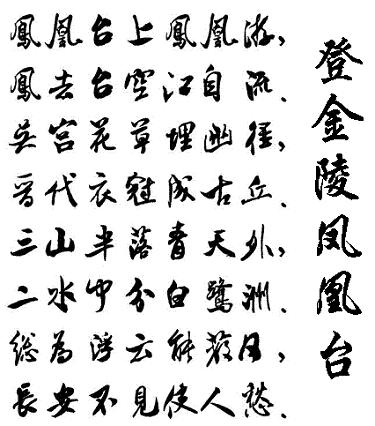 登金陵凤凰台
鳳凰台上鳳凰游，
鳳去台空江自流．
吴宫花草埋幽径，
晋代衣冠成古丘．
三山半落青天外，
二水中分白鹭洲．
総为浮云能蔽日，
長安不见使人愁．